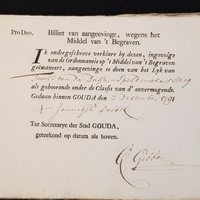 Pro Deo.
Billiet van aangeevinge, wegens het
Middel van 't Begraven.
IK ondergeschreve verklare by dezen, ingevolge
van de Ordonnantie op 't Middel van 't Begraven
geëmaneert, aangeevinge te doen van het Lyk van
als gehoorende onder de Classis van d' onvermogende.
Gedaan binnen GOUDA den 2 December 1791
Ter Secretarye der Stad GOUDA,
geteekend op datum als boven.